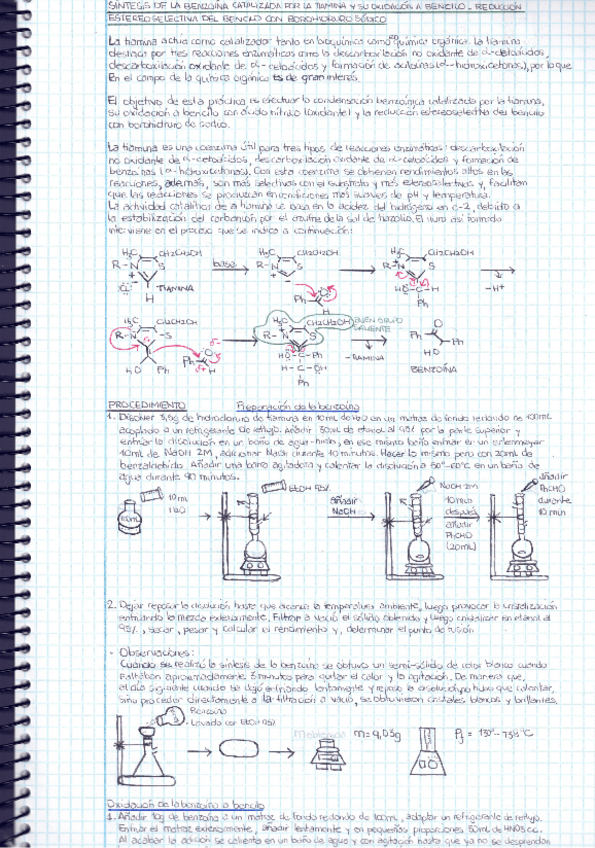 SÍNTESIS DE LA BENZOÍNA CATALIZADA POR LA TIAMINA Y SU OXIDACIÓN A BENCILO - REDUCCIÓN
ESTEREOSELECTIVA DEL BENCILO CON BOROHIDRURO SÓDICO
La tiamina actúa como catalizador tanto en bioquímica como química orgánica. La tiamina
destaca por tres reacciones enzimáticas como la descarboxilación no oxidante de α-cetoácidos,
descarboxilación oxidante de α-cetoácidos y formación de aciloínas (α-hidroxicetonas), por lo que
En el campo de la química orgánica es de gran interés.
El objetivo de esta práctica es efectuar la condensación benzoínica catalizada por la tiamina,
su oxidación a bencilo con ácido nítrico (oxidante) y la reducción estereoselectiva del bencilo
con borohidruro de sodio.
La tiamina es una coenzima útil para tres tipos de reacciones enzimáticas: descarboxilación
no oxidante de α-cetoácidos, descarboxilación oxidante de α-cetoácidos y formación de
benzoínas (α-hidroxicetonas). Con esta coenzima se obtienen rendimientos altos en las
reacciones, además, son más selectivas con el substrato y más estereoselectivas y, facilitan
que las reacciones se produzcan en condiciones más suaves de pH y temperatura.
La actividad catalítica de la tiamina se basa en la acidez del hidrógeno en C-2, debido a
la estabilización del carbanión por el azufre de la sal de tiazolio. El iluro así formado
interviene en el proceso que se indica a continuación:
H3C CH2CH2OH R-N S Cl TIAMINA H
base
H3C CH2CH2OH R-N S Ph O H
H3C CH2CH2OH R-N S HO-C-H Ph
-H+
H3C CH2CH2OH R-N S HO Ph
Ph O H
H3C CH2CH2OH R-N S HO-C-Ph H-C-OH Ph
BUEN GRUPO SALIENTE
-TIAMINA
Ph O Ph HO BENZOÍNA
PROCEDIMIENTO Preparación de la benzoína
1. Disolver 3,5g de hidrocloruro de tiamina en 10mL de H2O en un matraz de fondo redondo de 100mL
acoplado a un refrigerante de reflujo. Añadir 30mL de etanol al 95% por la parte superior y
enfriar la disolución en un baño de agua-hielo, en ese mismo baño enfriar en un erlenmeyer
10mL de NaOH 2M, adicionar NaOH durante 10 minutos. Hacer lo mismo pero con 20mL de
benzaldehído. Añadir una barra agitadora y calentar la disolución a 50º-60ºC en un baño de
agua durante 90 minutos.
10mL H2O
EtOH 95%
añadir NaOH
NaOH 2M
10 min después añadir PhCHO (20mL)
añadir PhCHO durante 10 min
2. Dejar reposar la disolución hasta que alcance la temperatura ambiente, luego provocar la cristalización
enfriando la mezcla exteriormente. Filtrar a vacío el sólido obtenido y luego cristalizar en etanol al
95%, secar, pesar y calcular el rendimiento y, determinar el punto de fusión.
- Observaciones:
Cuando se realizó la síntesis de la benzoína se obtuvo un semi-sólido de color blanco cuando
faltaban aproximadamente 5 minutos para quitar el calor y la agitación. De manera que,
al día siguiente cuando se siguió enfriando lentamente y reposó la disolución no hubo que calentar,
sino proceder directamente a la filtración a vacío, se obtuvieron cristales blancos y brillantes.
Benzoína
Lavado con EtOH 95%
m = 9,05g
Oxidación de la benzoína a bencilo
1. Añadir 10g de benzoína a un matraz de fondo redondo de 100mL, adaptar un refrigerante de reflujo.
Enfriar el matraz exteriormente, añadir lentamente y en pequeñas proporciones 50mL de HNO3 cc.
Al acabar la adición se calienta en un baño de agua y con agitación hasta que ya no se desprendan